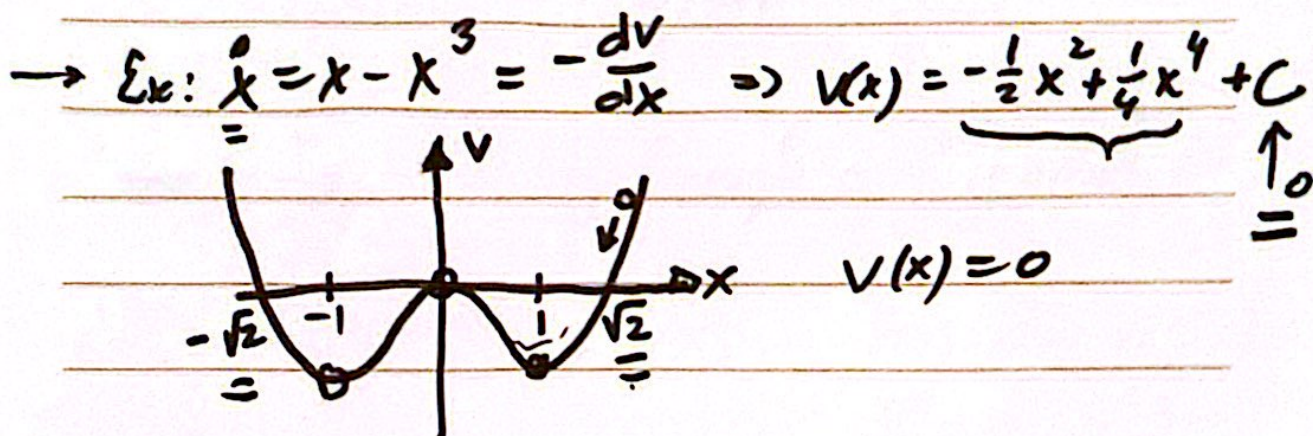 → Ex: ẋ = x - x³ = -dV/dx => V(x) = -1/2 x² + 1/4 x⁴ + C
↑ 0
V
x
V(x) = 0
-√2 -1 1 √2